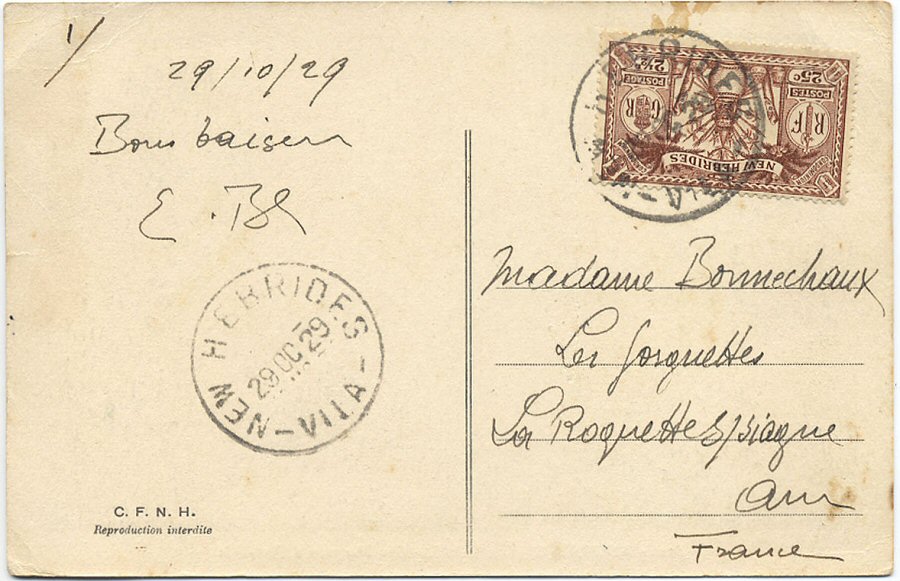 1/
29/10/29
Bons baisers
E. Bl
HEBRIDES
29 OC 29
NEW - VILA -
C. F. N. H.
Reproduction interdite
25c
POSTES
RF
NEW HEBRIDES
GR
2½d
POSTAGE
Madame Bonnechaux
Les Gorguettes
La Roquette s/Siagne
Am
France